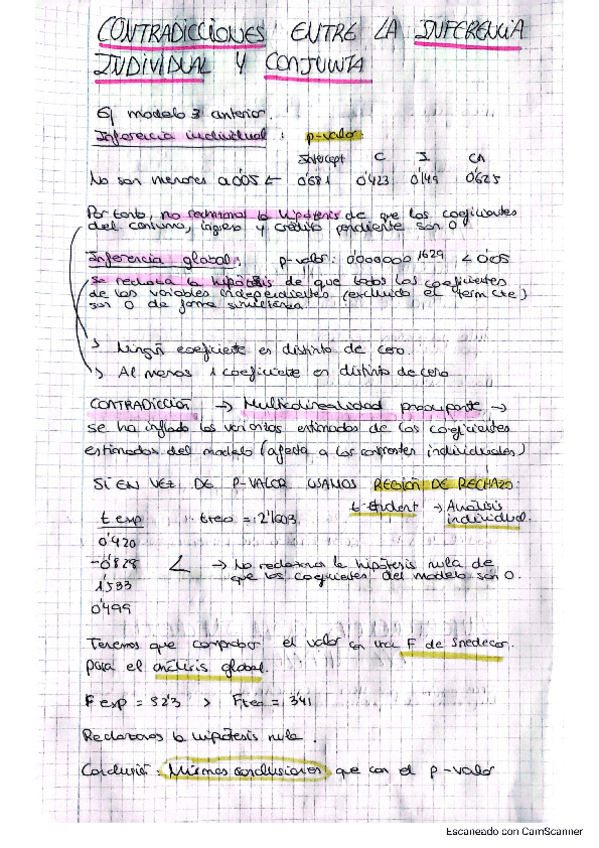 CONTRADICCIONES ENTRE LA INFERENCIA
INDIVIDUAL Y CONJUNTA
Ej modelo 3 anterior.
Inferencia individual : p-valor:
Intercept C I CA
No son menores a 0'05 ← 0'681 0'423 0'149 0'625
Por tanto, no rechazamos la hipótesis de que los coeficientes
del consumo, ingreso y crédito pendiente son 0.
Inferencia global: p-valor: 0'000000 1629 < 0'05
Se rechaza la hipótesis de que todos los coeficientes
de las variables independientes (excluido el term cte)
son 0 de forma simultánea.
Ningún coeficiente es distinto de cero.
Al menos 1 coeficiente es distinto de cero
CONTRADICCIÓN → Multicolinealidad preocupante →
se ha inflado las varianzas estimadas de los coeficientes
estimados del modelo (afecta a los contrastes individuales)
SI EN VEZ DE P-VALOR USAMOS REGIÓN DE RECHAZO:
t-student → Análisis
individual.
t exp tteo = 2'1603
0'420
-0'828
1'533
0'499
< → No rechazamos la hipótesis nula de
que los coeficientes del modelo son 0.
Tenemos que comprobar el valor con una F de Snedecor.
para el análisis global.
F exp = 52'3 > Fteo = 3'41
Rechazamos la hipótesis nula.
Conclusión: Mismas conclusiones que con el p-valor
Escaneado con CamScanner